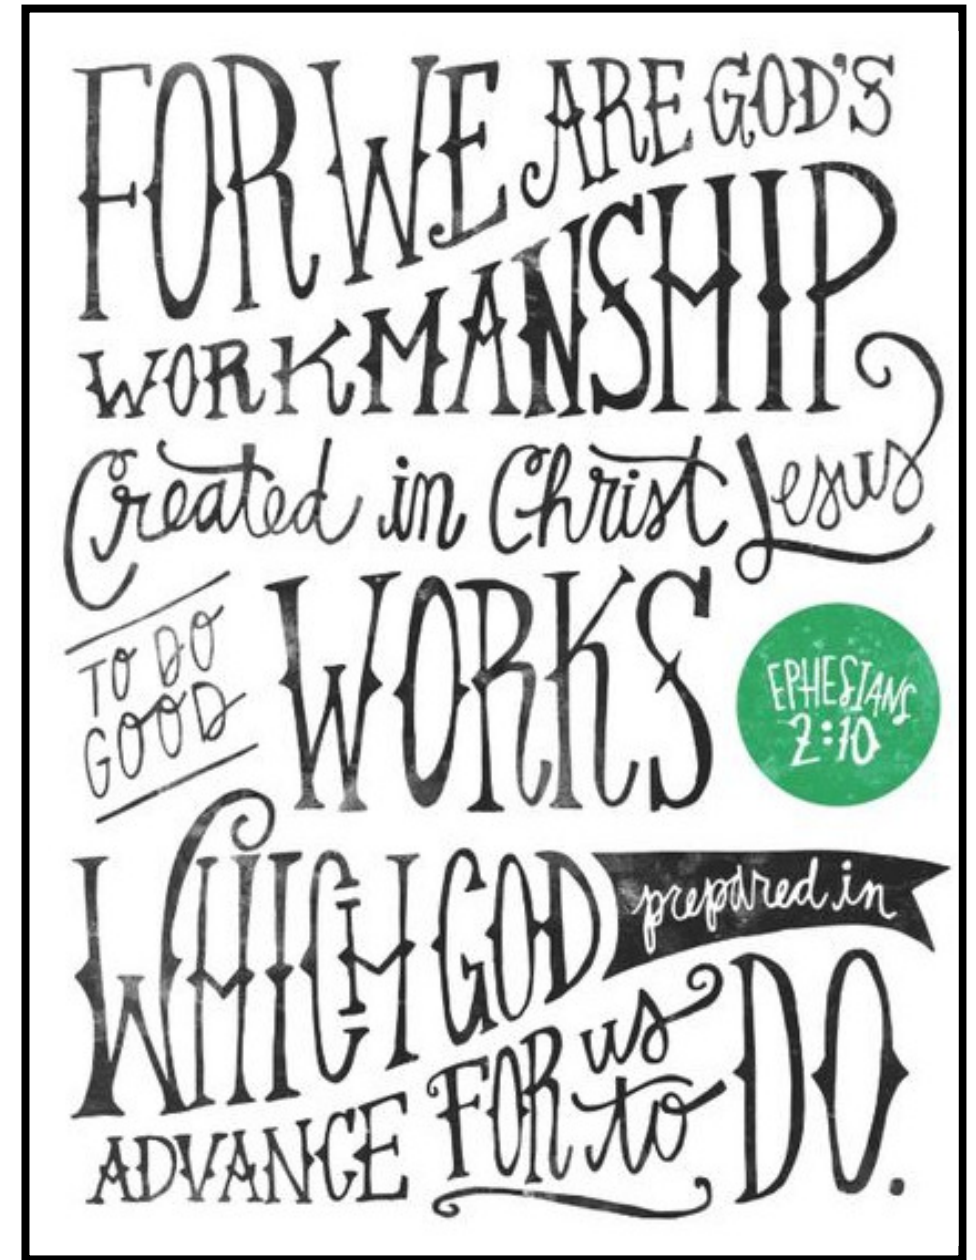 FOR WE ARE GOD'S
WORKMANSHIP
Created in Christ Jesus
TO DO
GOOD
WORKS
EPHESIANS
2:10
WHICH GOD
prepared in
ADVANCE FOR us
to DO.